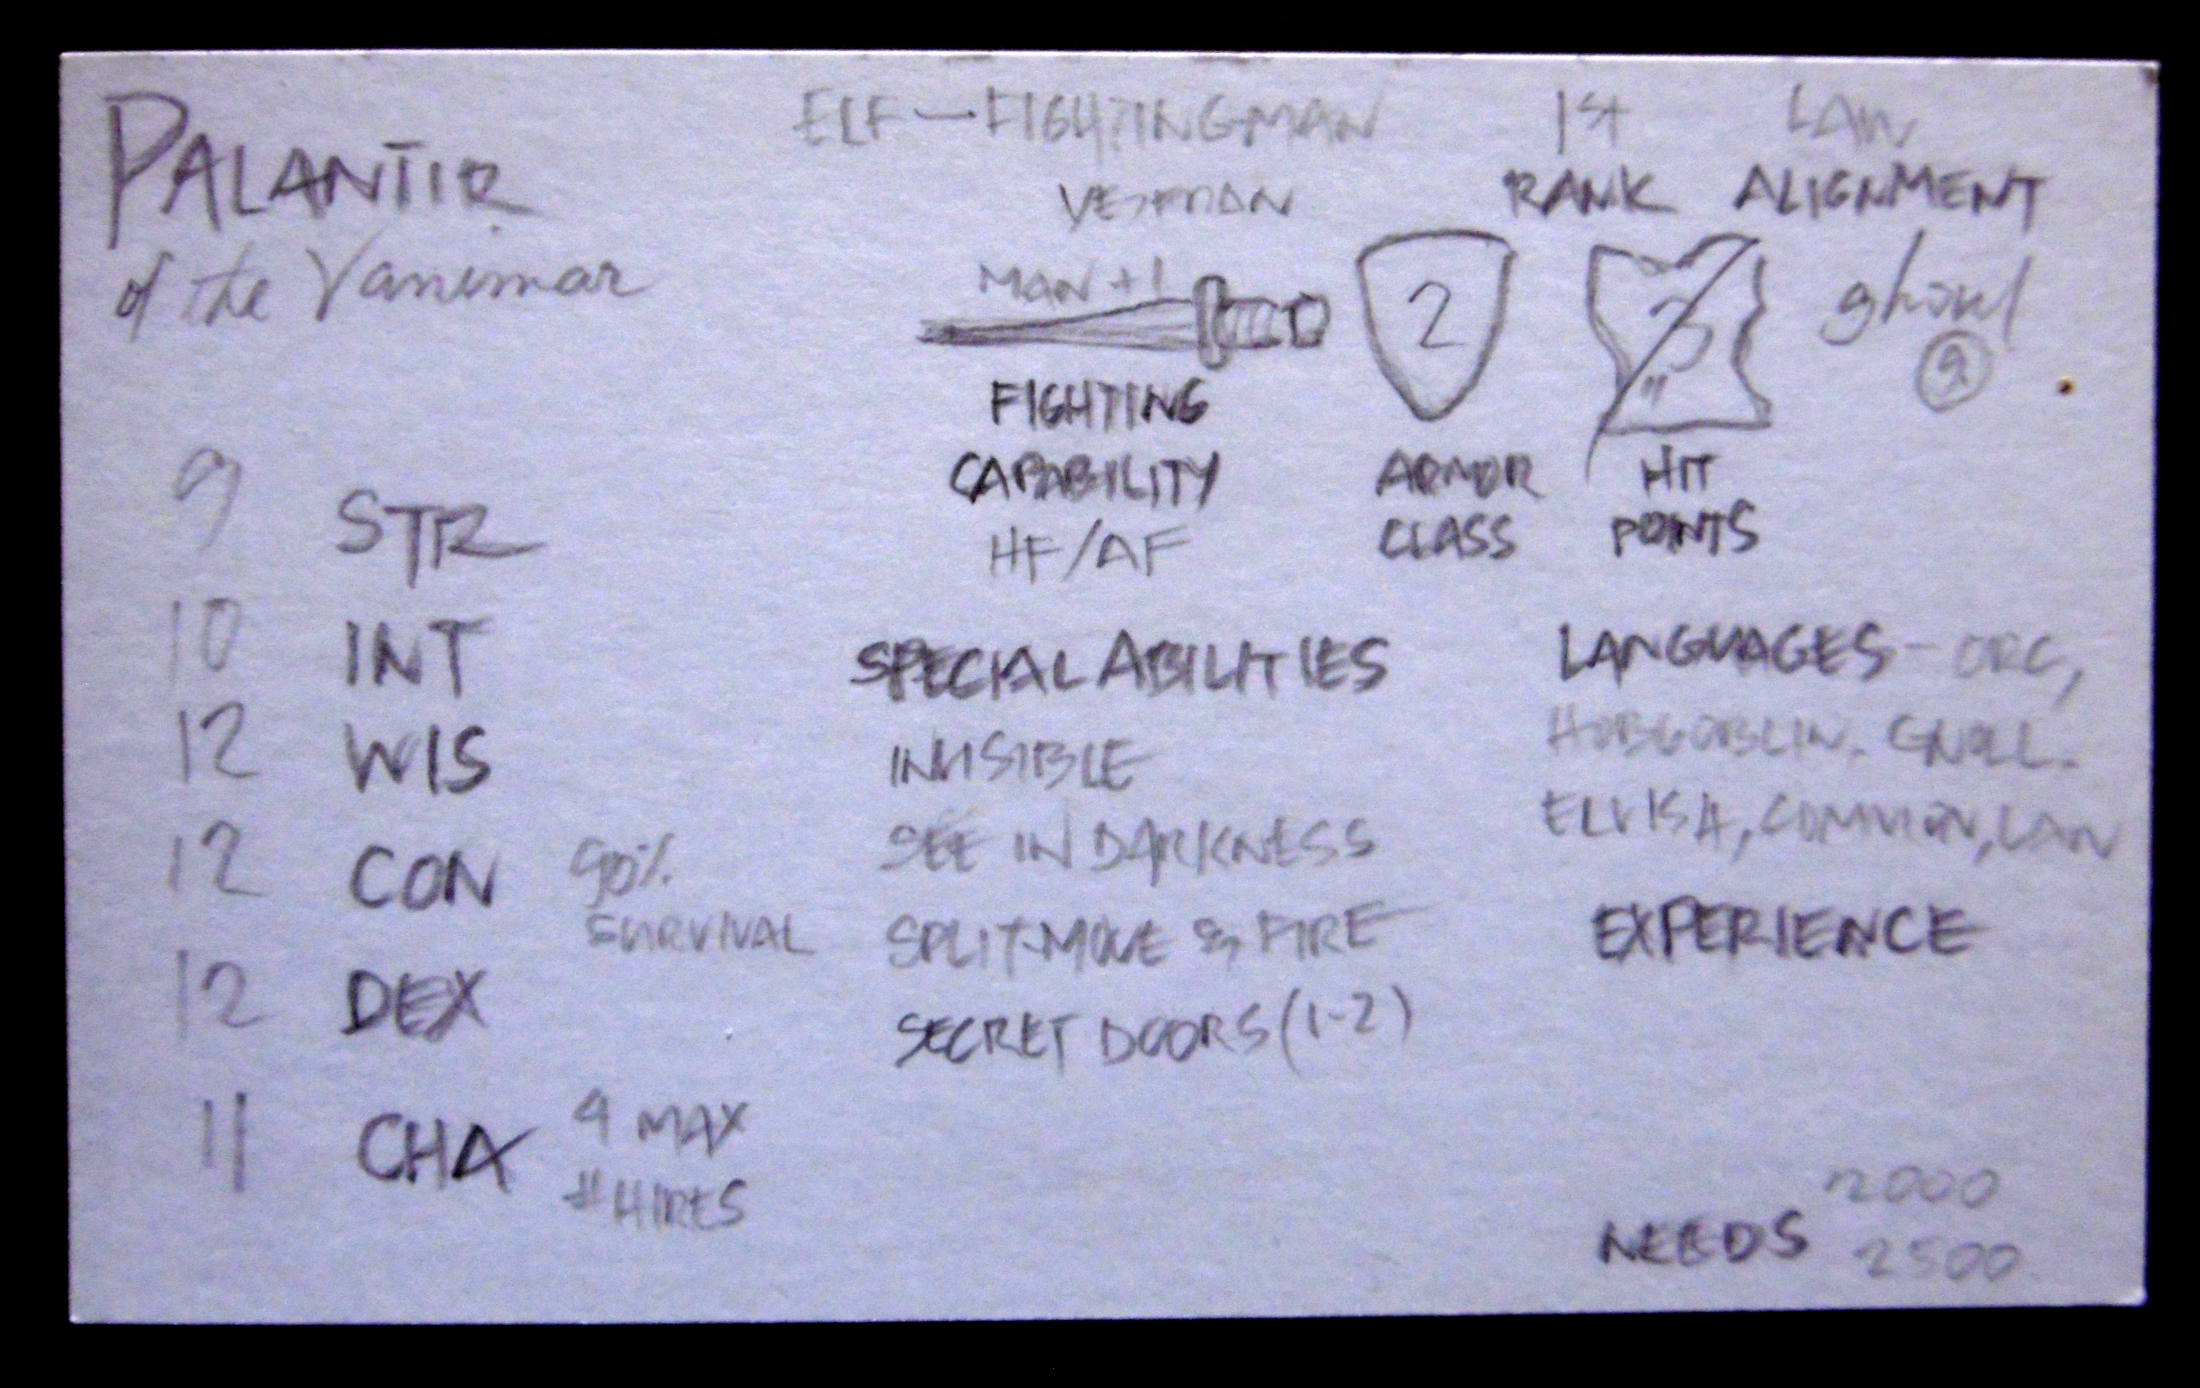 PALANTIR
of the Vanimar
ELF – FIGHTINGMAN
VETERAN
1st
RANK
LAW
ALIGNMENT
MAN +1
FIGHTING
CAPABILITY
HF/AF
2
ARMOR
CLASS
3
HIT
POINTS
ghoul
9 STR
10 INT
12 WIS
12 CON 90%
SURVIVAL
12 DEX
11 CHA 4 MAX
# HIRES
SPECIAL ABILITIES
INVISIBLE
SEE IN DARKNESS
SPLIT-MOVE & FIRE
SECRET DOORS (1-2)
LANGUAGES – ORC,
HOBGOBLIN. GNOLL.
ELVISH, COMMON, LAW
EXPERIENCE
NEEDS 2000
2500